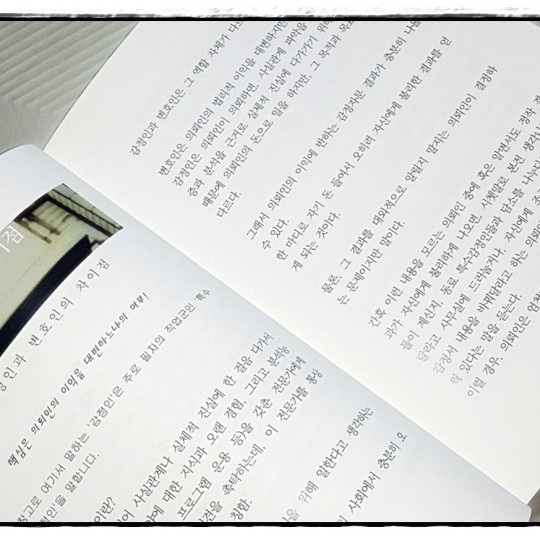 이점
정인과 변호인의 차이점
핵심은 의뢰인의 이익을 대변하느냐의 여부!
참고로 여기서 말하는 '감정인'은 주로 필자의 직업군인 '특수
정인'을 말합니다.
이란?
어 사실관계나 실체적 진실에 한 걸음 다가서
야에 대한 지식과 오랜 경험, 그리고 분석능
프로그램 운용 등)을 갖춘 전문가에게
견을 촉탁하는데, 이 전문가를 통상
칭함.
을 위해 일한다고 생각하는
사회에서 충분히 오
감정인과 변호인은 그 역할 자체가 다르
변호인은 의뢰인의 법리적 이익을 대변하지만
감정인은 의뢰인이 의뢰하면, 사실관계 파악을
증과 분석을 근거로 실체적 진실에 다가가기 위하
때문에 의뢰인의 돈으로 일을 하지만, 그 목적과 목표
다르다.
그래서 의뢰인의 이익에 반하는 감정자문 결과가 충분히 나올
수 있다.
한 마디로 자기 돈 들여서 오히려 자신에게 불리한 결과를 얻
게 되는 것이다.
물론, 그 결과를 대외적으로 알릴지 말지는 의뢰인이 결정하
는 문제이지만 말이다.
간혹 이런 내용을 모르는 의뢰인 중에 혹은 알면서도 정작 결
과가 자신에게 불리하게 나오면, 시쳇말로 본전 생각나
들이 계신지, 동료 특수감정인들과 담소를 나누다
말라고 사무실에 드러눕거나, 자신에게
감정서 내용을 바꿔달라고 하는 의뢰인
꽤 있다는 말을 듣는다.
이럴 경우, 의뢰인은